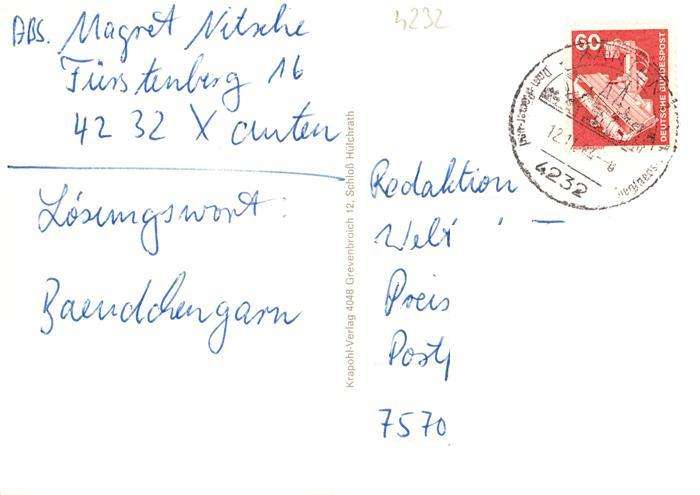 ABS. Magret Nitsche
Fürstenberg 16
4232 Xanten
Lösungswort:
Baendchengarn
4232
60
DEUTSCHE BUNDESPOST
4232
Krapohl-Verlag 4048 Grevenbroich 12, Schloß Hülchrath
Redaktion
Welt
Preis
Postf
7570